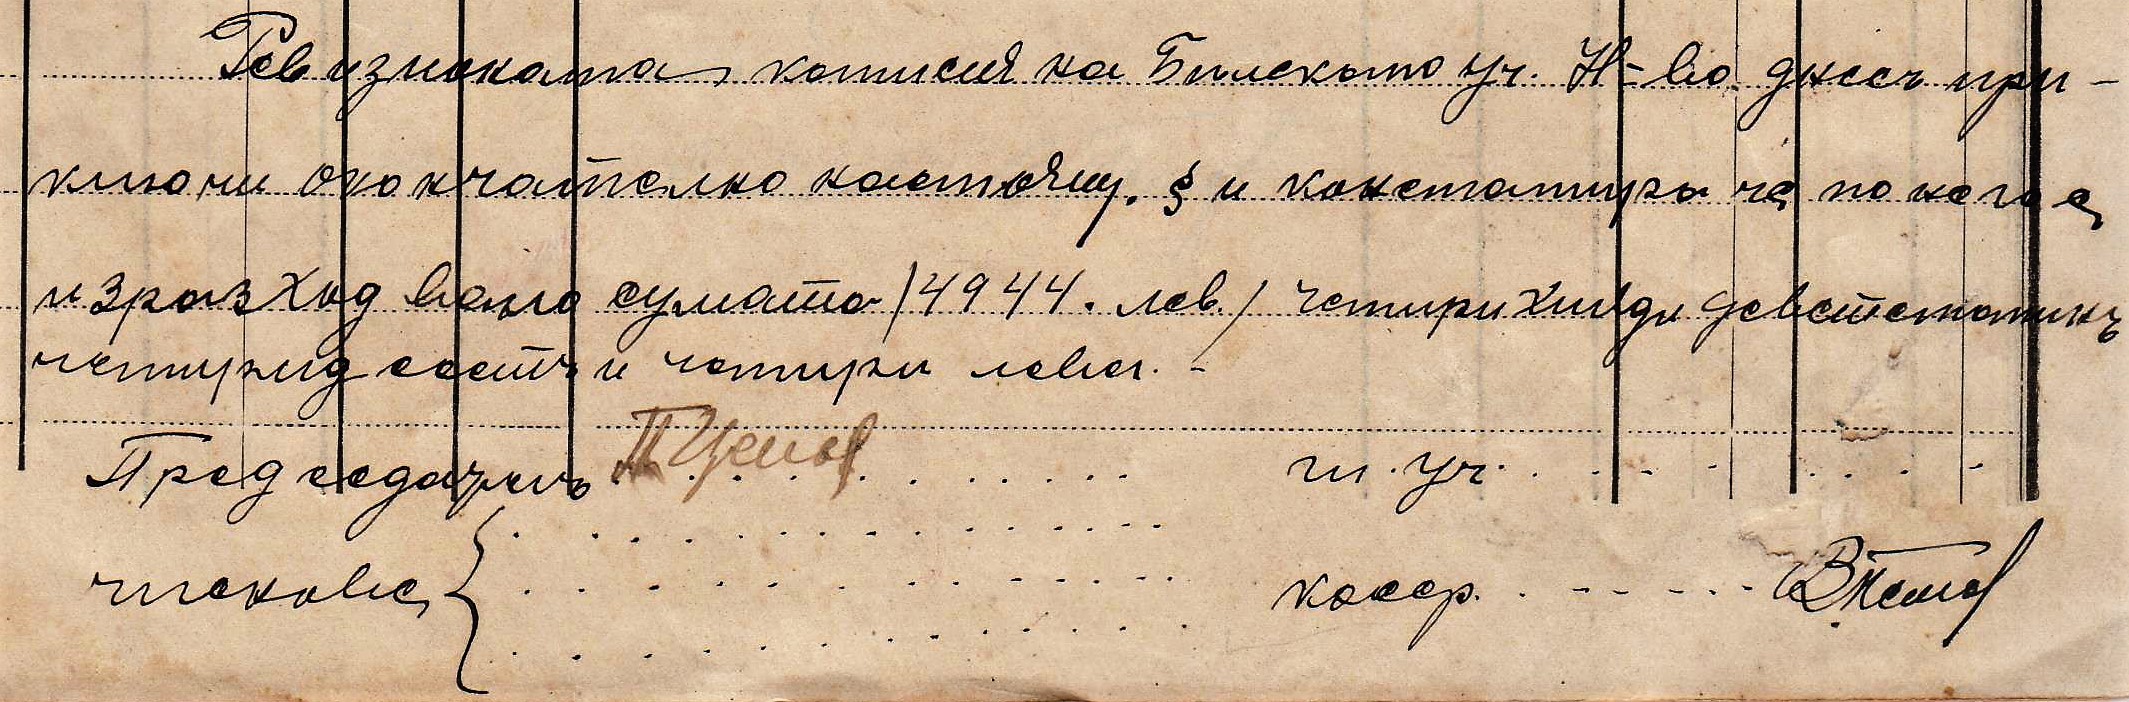 Ревизионата комисия на Билското уч. Н-во днесъ при-
ключи окончателно настоящ. § и констатира че по него е
изразходвана сумата /4944. лев./ четири хиляди деветстотинъ
четиридесеть и четири лева. -
Председательъ П Ценов . . . . . . . . гл. уч. . . . . . . .
членове {
касср. . - - - - -